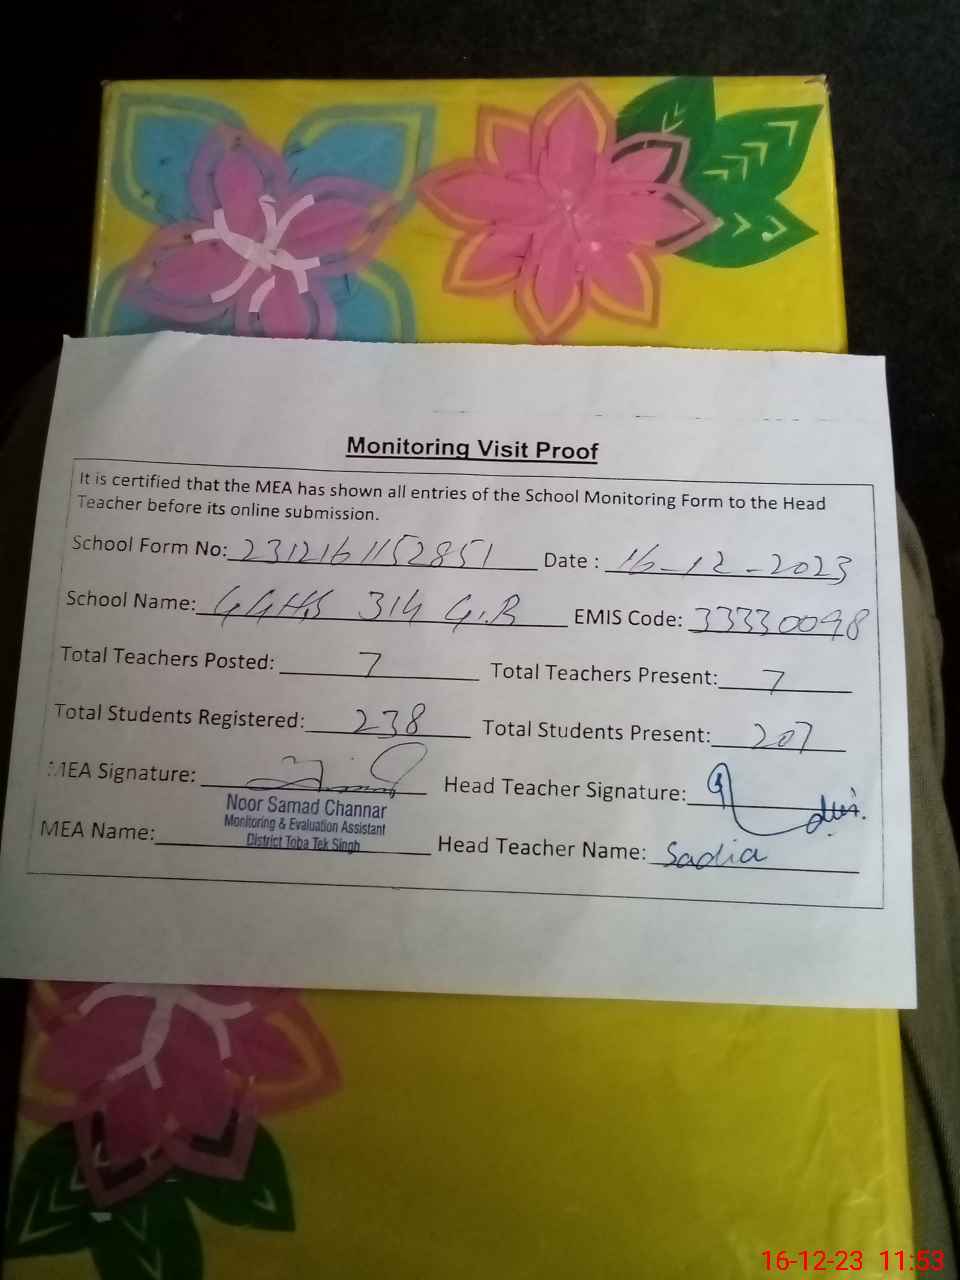 Monitoring Visit Proof
It is certified that the MEA has shown all entries of the School Monitoring Form to the Head
Teacher before its online submission.
School Form No: 2312161152851 Date : 16-12-2023
School Name: GGHS 314 G.B EMIS Code: 33330098
Total Teachers Posted: 7 Total Teachers Present: 7
Total Students Registered: 238 Total Students Present: 207
MEA Signature: Head Teacher Signature:
Noor Samad Channar
Monitoring & Evaluation Assistant
District Toba Tek Singh
MEA Name: Head Teacher Name: Sadia
16-12-23 11:53